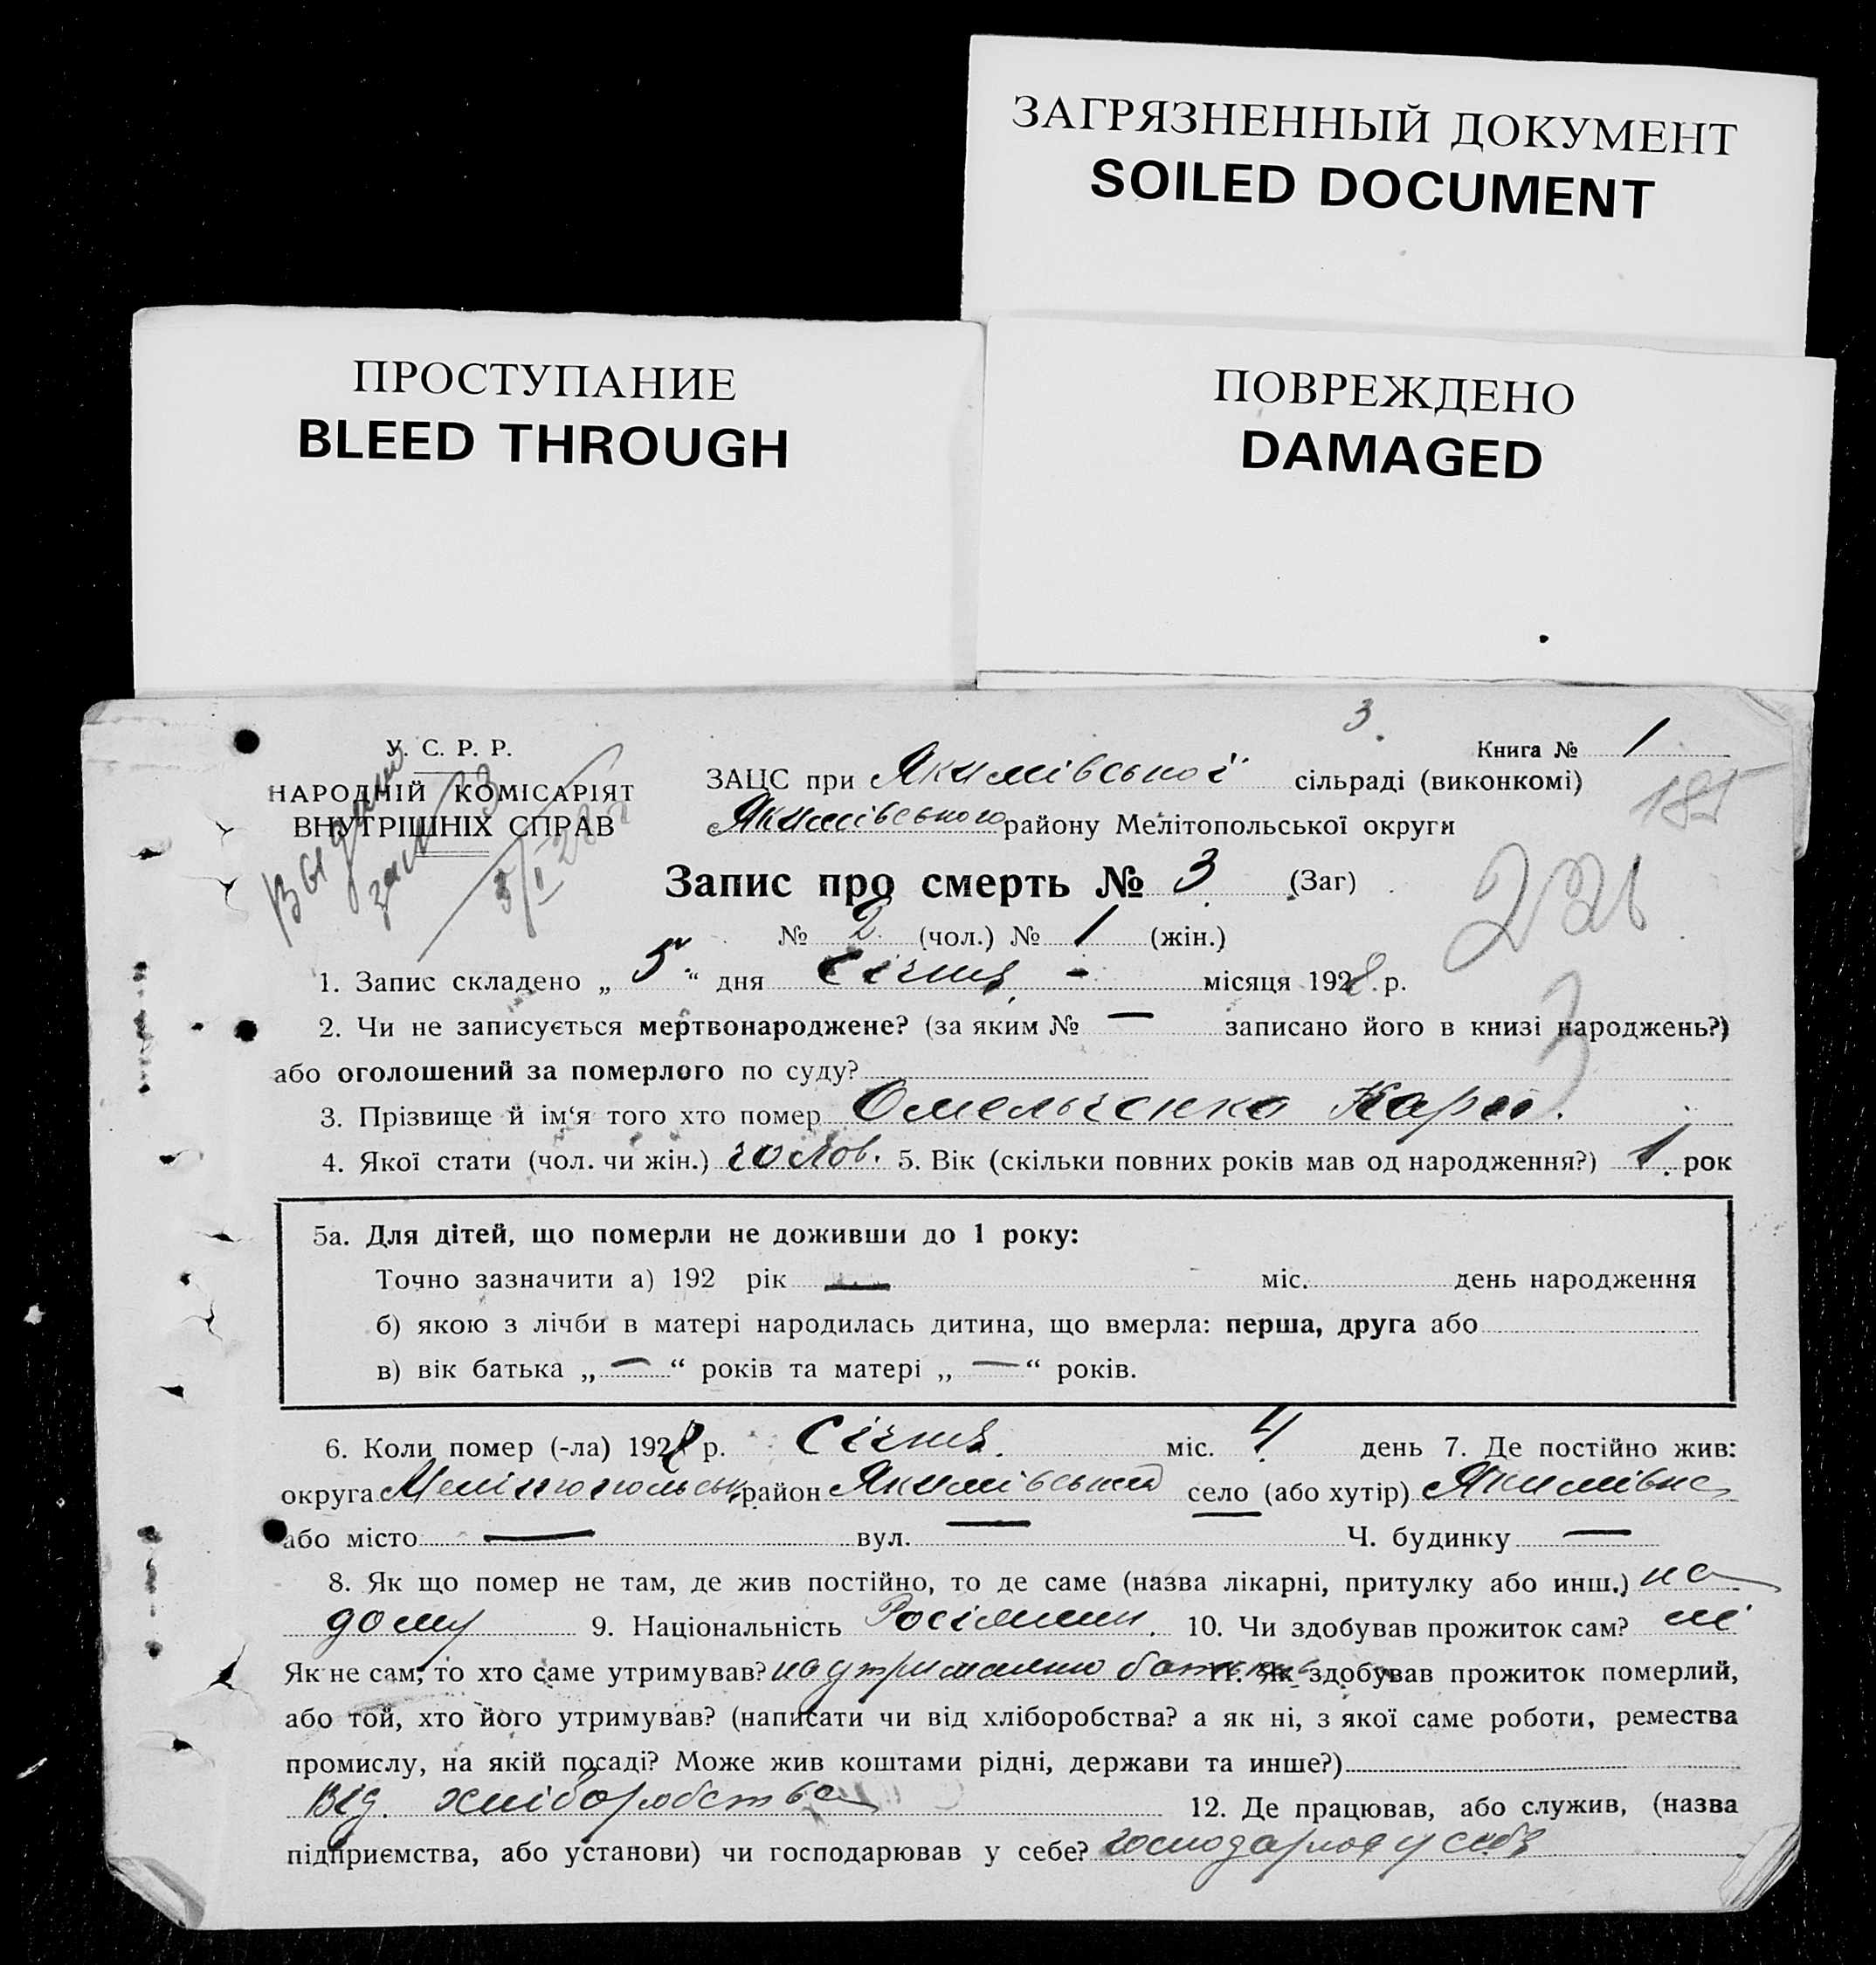 ЗАГРЯЗНЕННЫЙ ДОКУМЕНТ
SOILED DOCUMENT
ПРОСТУПАНИЕ
BLEED THROUGH
ПОВРЕЖДЕНО
DAMAGED
3.
У. С. Р. Р.
НАРОДНІЙ КОМІСАРІЯТ
ВНУТРІШНІХ СПРАВ
Книга № 1
ЗАЦС при Якимівської сільраді (виконкомі)
Якимівського району Мелітопольської округи
185
Запис про смерть № 3 (Заг)
№ 2 (чол.) № 1 (жін.)
1. Запис складено „ 5 “ дня Січня - місяця 1928 р.
2. Чи не записується мертвонароджене? (за яким № — записано його в книзі народжень?)
або оголошений за померлого по суду?
3
3. Прізвище й ім‘я того хто помер Омельченко Карп.
4. Якої стати (чол. чи жін.) чолов. 5. Вік (скільки повних років мав од народження?) 1 рок
5а. Для дітей, що померли не доживши до 1 року:
Точно зазначити а) 192 рік — міс. день народження
б) якою з лічби в матері народилась дитина, що вмерла: перша, друга або
в) вік батька „ — “ років та матері „ — “ років.
6. Коли помер (-ла) 1928 р. Січня міс. 4 день 7. Де постійно жив:
округа Мелітопольськ. район Якимівський село (або хутір) Якимівка
або місто — вул. — Ч. будинку —
8. Як що помер не там, де жив постійно, то де саме (назва лікарні, притулку або инш.) на
дому 9. Національність Росіянин. 10. Чи здобував прожиток сам? ні
Як не сам, то хто саме утримував? на утриманню батьків 11. Як здобував прожиток померлий,
або той, хто його утримував? (написати чи від хліборобства? а як ні, з якої саме роботи, ремества
промислу, на якій посаді? Може жив коштами рідні, держави та инше?)
Від. хліборобства 12. Де працював, або служив, (назва
підприємства, або установи) чи господарював у себе? господарював у себе